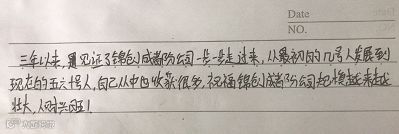 Date
NO.
三年以来,是见证了锦创成都分公司一步一步走过来,从最初的几号人发展到
现在的五六十号人,自己从中也收获很多,祝福锦创成都分公司规模越来越
壮大,人财兴旺!